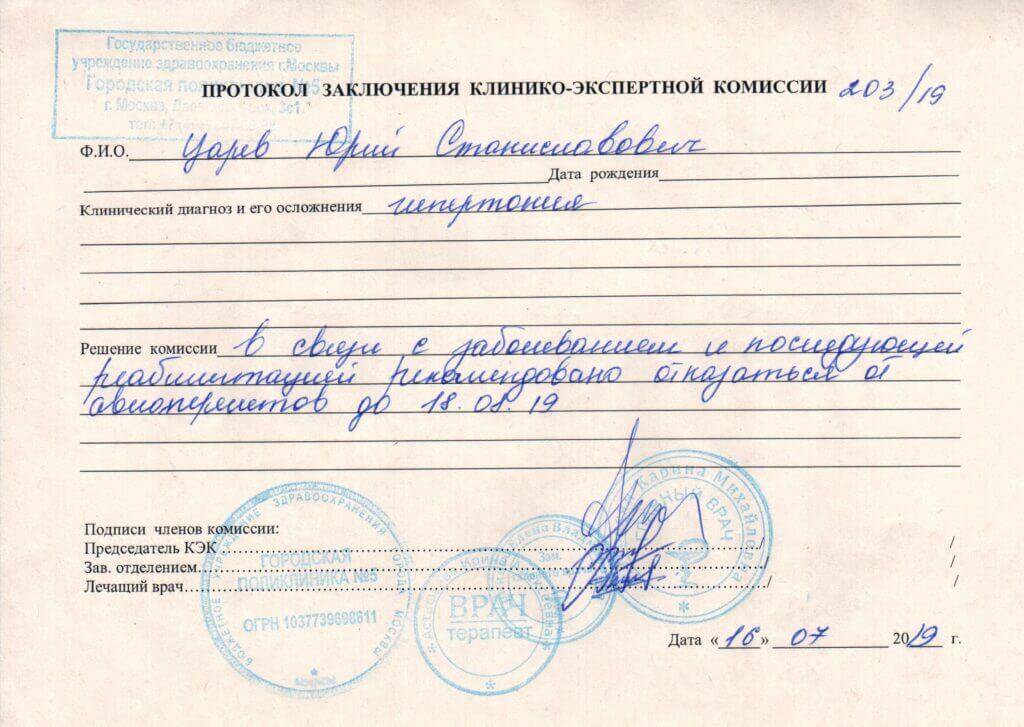 Государственное бюджетное
учреждение здравоохранения г.Москвы
Городская поликлиника №5
г. Москва, 3с1.
ПРОТОКОЛ ЗАКЛЮЧЕНИЯ КЛИНИКО-ЭКСПЕРТНОЙ КОМИССИИ 203/19
Ф.И.О. Царев Юрий Станиславович
Дата рождения
Клинический диагноз и его осложнения гипертония
Решение комиссии в связи с заболеванием и последующей
реабилитацией рекомендовано отказаться от
авиоперелетов до 18.08.19
Подписи членов комиссии:
Председатель КЭК / /
Зав. отделением / /
Лечащий врач / /
БЮДЖЕТНОЕ УЧРЕЖДЕНИЕ ЗДРАВООХРАНЕНИЯ ГОРОДА МОСКВЫ
ГОРОДСКАЯ
ПОЛИКЛИНИКА №5
ОГРН 1037739698611
ВРАЧ
терапевт
Зам.
Карина Михайловна
ВРАЧ
Дата «16» 07 2019 г.